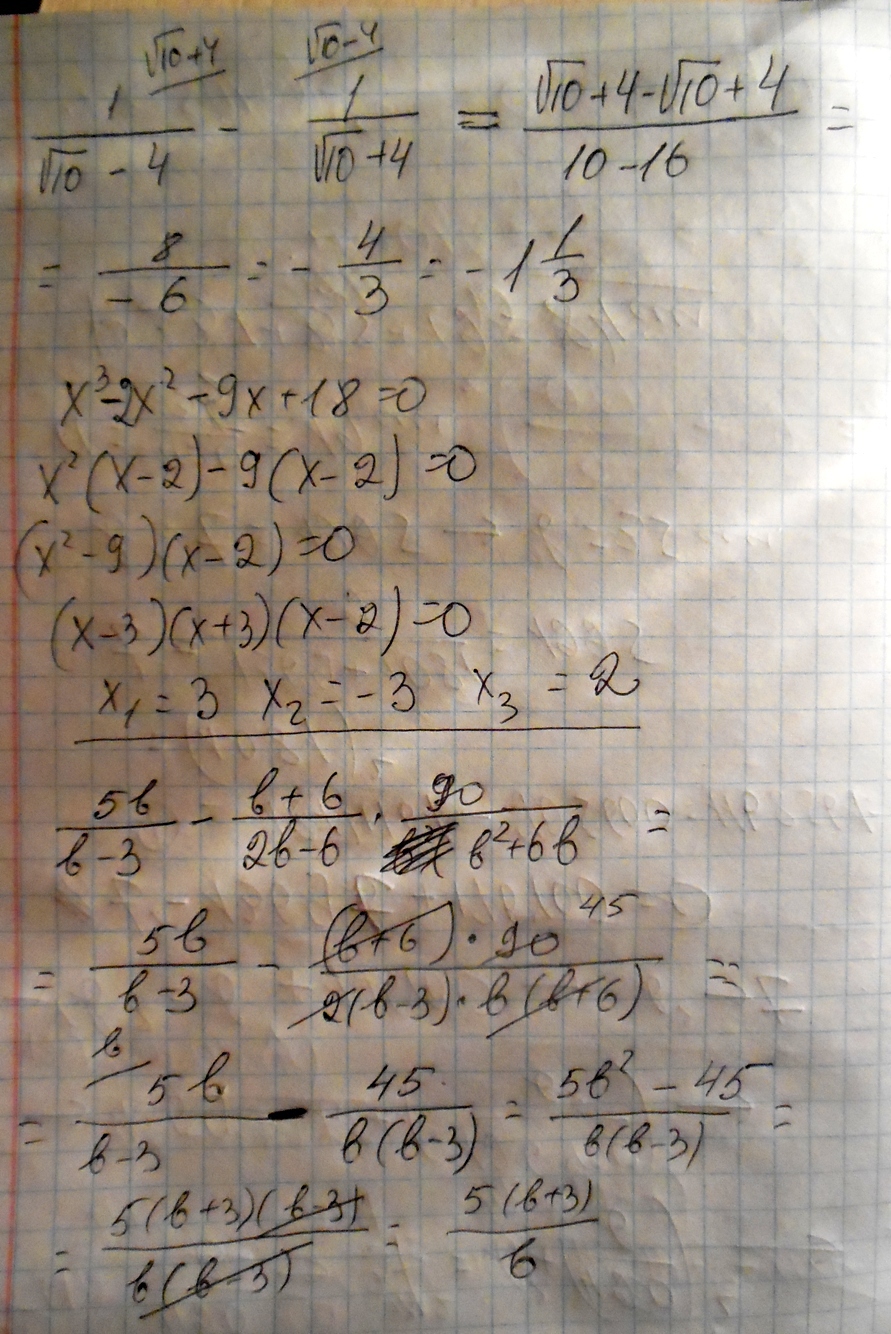 √10+4 √10-4
1/(√10 - 4) - 1/(√10 + 4) = (√10+4-√10+4)/(10-16) =
= 8/(-6) = - 4/3 = - 1 1/3
x³-2x²-9x+18=0
x²(x-2)-9(x-2)=0
(x²-9)(x-2)=0
(x-3)(x+3)(x-2)=0
x₁=3 x₂=-3 x₃=2
5b/(b-3) - (b+6)/(2b-6) · 90/(b²+6b) =
= 5b/(b-3) - ((b+6)·90 45)/(2(b-3)·b(b+6)) =
b
= 5b/(b-3) - 45/(b(b-3)) = (5b²-45)/(b(b-3)) =
= (5(b+3)(b-3))/(b(b-3)) = (5(b+3))/b